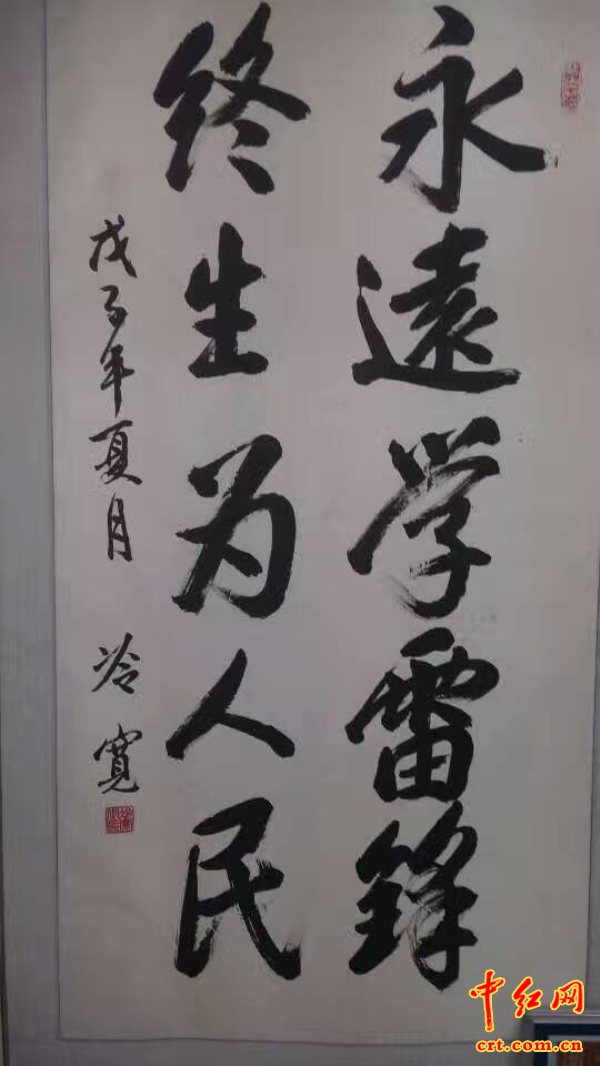 永遠学雷锋
终生为人民
戊子年夏月 冷寛
中红网
crt.com.cn